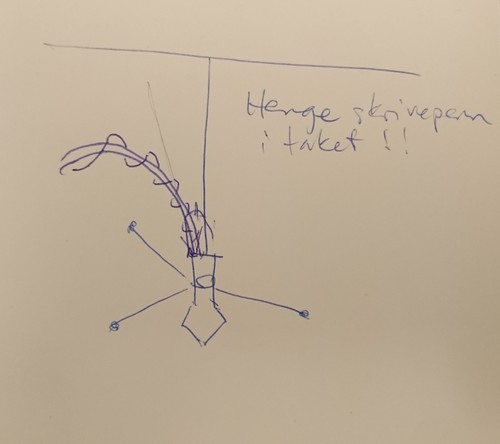 Henge skrivepenn
i taket !!